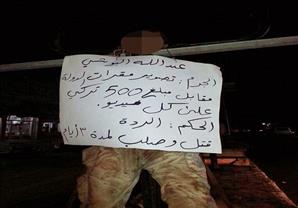 عبد الله البوعبي
الجرم: تصوير مقرات لدولة
مقابل مبلغ 500 تركي
على كل فيديو.
الحكم: الردة
قتل وصلب لمدة ٣ أيام